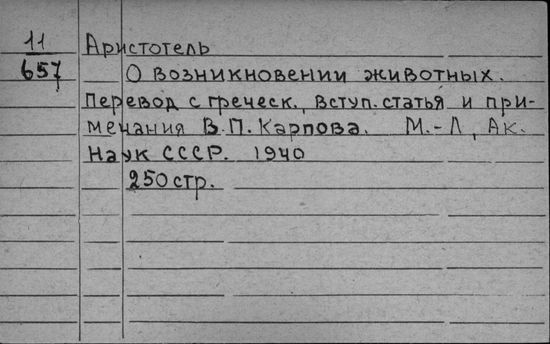 11 Аристотель
657 О возникновении животных.
Перевод с греческ., вступ. статья и при-
мечания В.П. Карпова. М.-Л, Ак.
Наук СССР. 1940
250 стр.